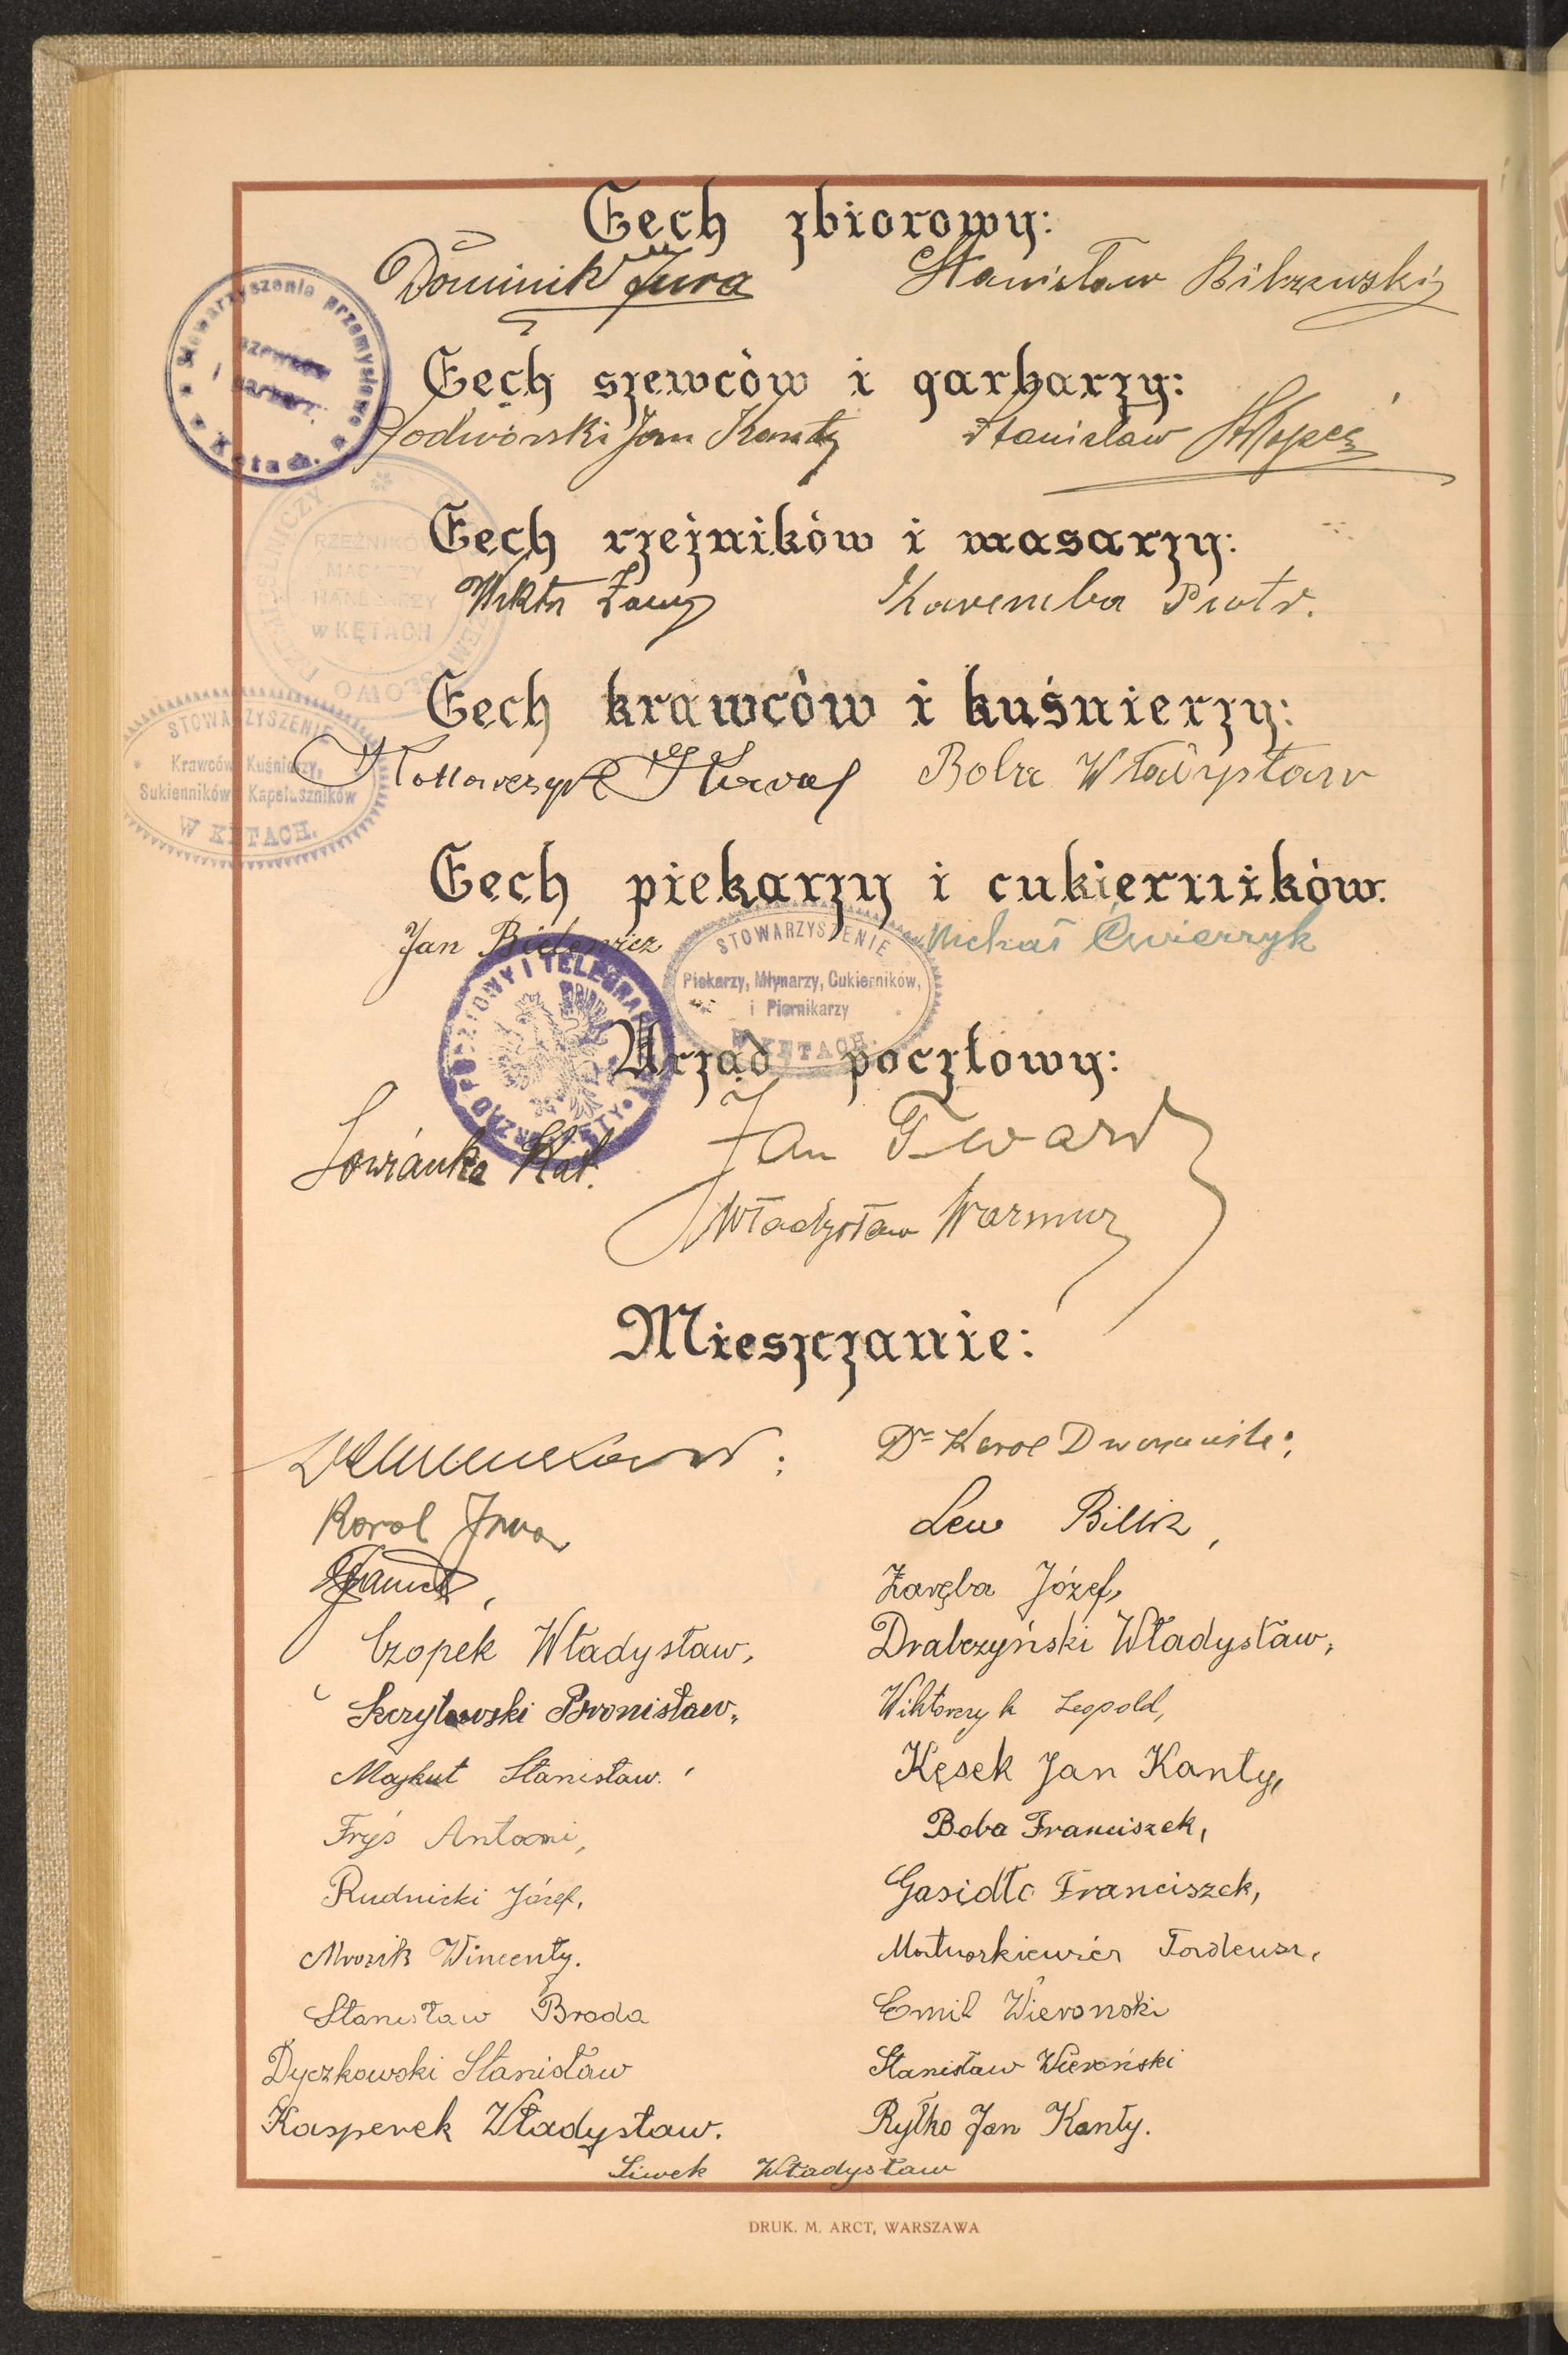 Cech zbiorowy:
Dominik Jura Stanisław Bilczewski
Stowarzyszenie przemysłowe
szewców
i garbarzy
w Kętach.
Cech szewców i garbarzy:
Podwórski Jan Kanty Stanisław
Cech rzeźników i masarzy:
RZEŹNIKÓW
MASARZY
HANDLARZY
w KĘTACH
Wiktor Karemba Piotr.
Cech krawców i kuśnierzy:
STOWARZYSZENIE
Krawców, Kuśnierzy,
Sukienników i Kapeluszników
W KĘTACH.
Władysław
Cech piekarzy i cukierników.
Jan Bielenicz Michał Ćwierzyk
STOWARZYSZENIE
Piekarzy, Młynarzy, Cukierników,
i Piernikarzy
W KĘTACH.
URZĄD POCZTOWY I TELEGRAF
KĘTY
Urząd pocztowy:
Jan Tward
Łowianka Kat.
Władysław Warmuz
Mieszczanie:
Dr Karol
Karol Jura Lew Billik,
Zaręba Józef,
Czopek Władysław, Drabczyński Władysław,
Bronisław, Wiktorczyk Leopold,
Majkut Stanisław. Kęsek Jan Kanty,
Fryś Antoni, Boba Franciszek,
Rudnicki Józef, Gasidło Franciszek,
Mrozik Wincenty. Matuszkiewicz Tadeusz,
Stanisław Broda Emil Wieroński
Dyczkowski Stanisław Stanisław Wieroński
Kasperek Władysław. Ryłko Jan Kanty.
Siwek Władysław
DRUK. M. ARCT, WARSZAWA